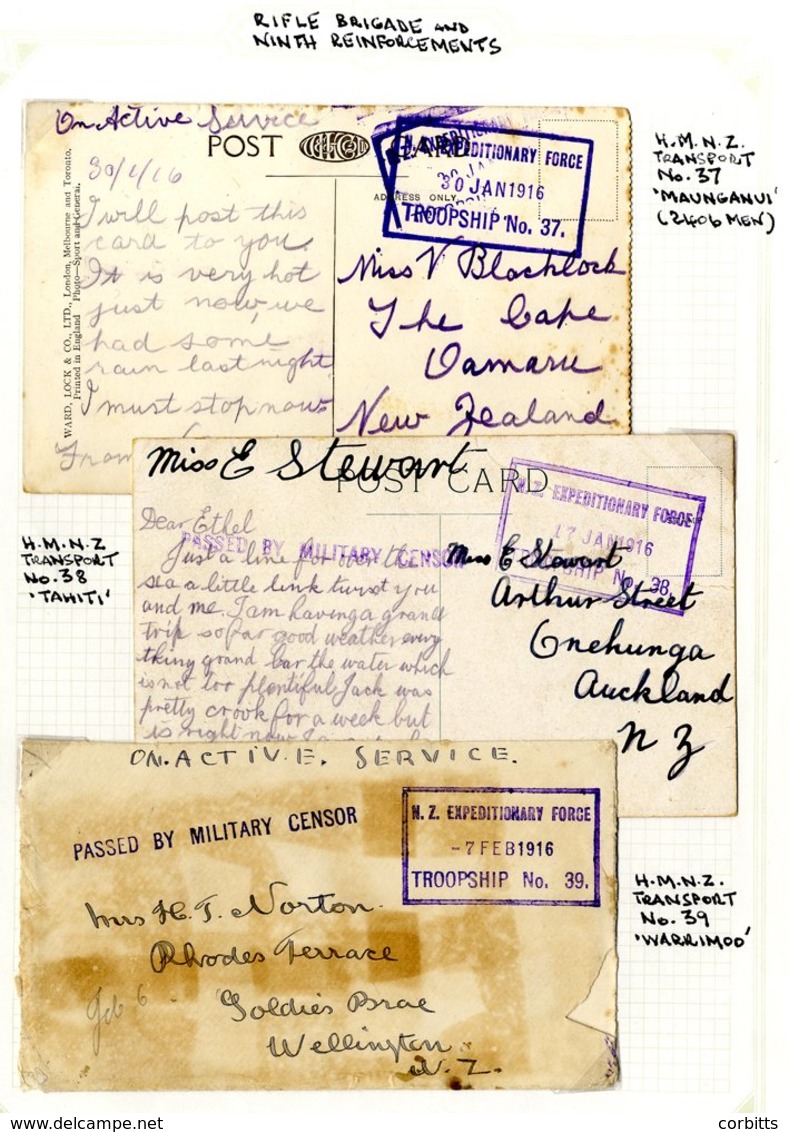 RIFLE BRIGADE AND
NINTH REINFORCEMENTS
On Active Service
POST CARD
ADDRESS ONLY
N.Z. EXPEDITIONARY FORCE
30 JAN 1916
TROOPSHIP No. 37.
H.M.N.Z.
TRANSPORT
No. 37
'MAUNGANUI'
(2406 MEN)
WARD, LOCK & CO., LTD., London, Melbourne and Toronto.
Printed in England Photo—Sport and General.
30/1/16
I will post this
card to you.
It is very hot
just now, we
had some
rain last night
I must stop now
From
Miss V Blacklock
The Cape
Oamaru
New Zealand
Miss E Stewart
POST CARD
N.Z. EXPEDITIONARY FORCE
17 JAN 1916
TROOPSHIP No. 38.
H.M.N.Z
TRANSPORT
No. 38
'TAHITI'
PASSED BY MILITARY CENSOR
Dear Ethel
Just a line from over the
sea a little link twixt you
and me. I am having a grand
trip so far good weather every
thing grand bar the water which
is not too plentiful Jack was
pretty crook for a week but
is right now
Miss E Stewart
Arthur Street
Onehunga
Auckland
N Z
ON.ACTIVE. SERVICE.
PASSED BY MILITARY CENSOR
N.Z. EXPEDITIONARY FORCE
-7 FEB 1916
TROOPSHIP No. 39.
Mrs H. T. Norton.
Rhodes Terrace
Goldies Brae
Wellington
N.Z.
Feb 6
H.M.N.Z.
TRANSPORT
No. 39
'WARRIMOO'
corbitts